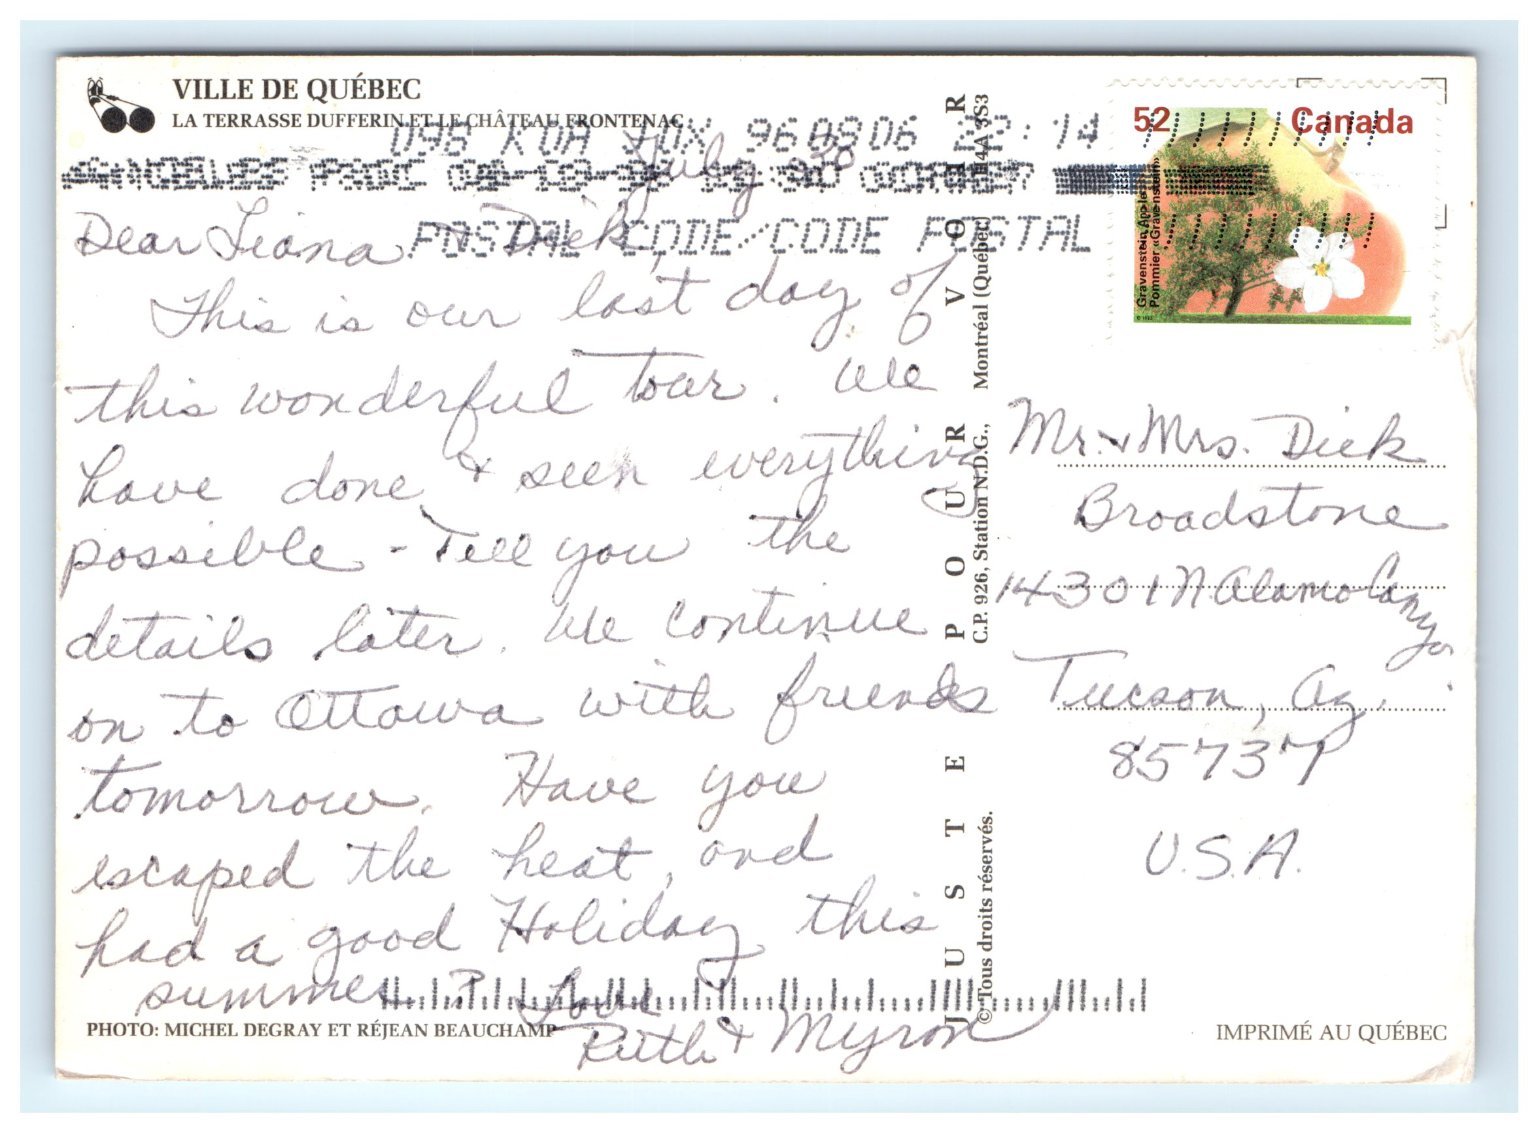 VILLE DE QUÉBEC
LA TERRASSE DUFFERIN ET LE CHÂTEAU FRONTENAC
K0A 96 08 06 22:14
July
POSTAL CODE/CODE POSTAL
Dear Liana + Dick,
This is our last day of
this wonderful tour. We
have done + seen everything
possible - Tell you the
details later. We continue
on to Ottawa with friends
tomorrow. Have you
escaped the heat, and
had a good Holiday this
summer? Love
Ruth + Myron
PHOTO: MICHEL DEGRAY ET RÉJEAN BEAUCHAMP
JUSTE POUR VOIR
© Tous droits réservés. C.P. 926, Station N.D.G., Montréal (Québec) H4A 3S3
52 Canada
Gravenstein Apple
Pommier «Gravenstein»
Mr. + Mrs. Dick
Broadstone
14301 N Alamo Canyon
Tucson, Az.
85737
U.S.A.
IMPRIMÉ AU QUÉBEC